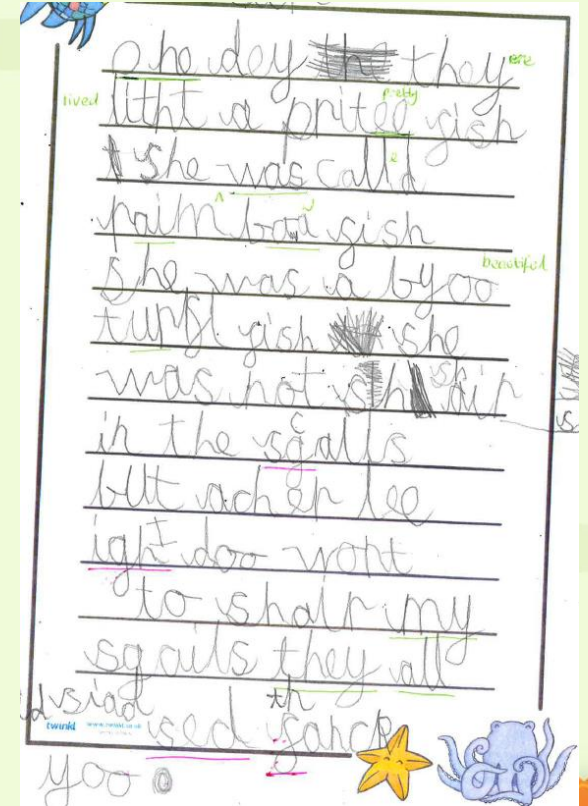 One day the they ere
lived litht a pritee pretty gish
she was calld e
raimboa w gish
she was a byoo beautiful
turfl gish she
was not sh shair
in the sgalls c
but acherlee
igh I doo wont
to shair my
sgails they all
siad
sed ganck th
twinkl www.twinkl.co.uk
yoo